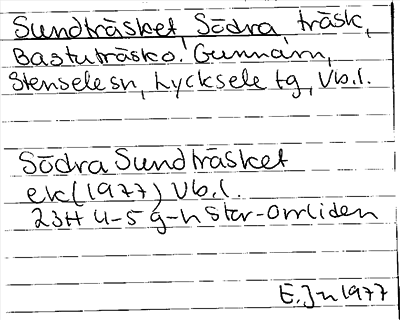 Sundträsket, Södra, träsk,
Bastuträsk o. Gunnarn,
Stensele sn, Lycksele tg, Vb. l.
Södra Sundträsket
ek (1977) Vb. l.
23H 4-5 g-h Stor-Orrliden
E. Jn 1977